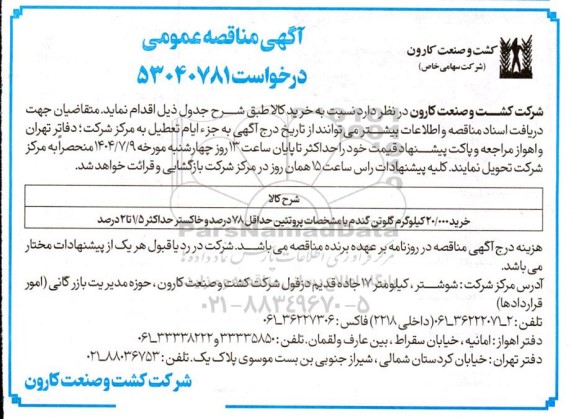 کشت و صنعت کارون
(شرکت سهامی خاص)
آگهی مناقصه عمومی
درخواست ۵۳۰۴۰۷۸۱
شرکت کشت و صنعت کارون در نظر دارد نسبت به خرید کالا طبق شرح جدول ذیل اقدام نماید. متقاضیان جهت
دریافت اسناد مناقصه و اطلاعات بیشتر می‌توانند از تاریخ درج آگهی به جزء ایام تعطیل به مرکز شرکت؛ دفاتر تهران
و اهواز مراجعه و پاکت پیشنهاد قیمت خود را حداکثر تا پایان ساعت ۱۳ روز چهارشنبه مورخه ۱۴۰۴/۷/۹ منحصراً به مرکز
شرکت تحویل نمایند. کلیه پیشنهادات راس ساعت ۱۵ همان روز در مرکز شرکت بازگشایی و قرائت خواهد شد.
شرح کالا
خرید ۲۰/۰۰۰ کیلوگرم گلوتن گندم با مشخصات پروتئین حداقل ۷۸ درصد و خاکستر حداکثر ۱/۵ تا ۲ درصد
هزینه درج آگهی مناقصه در روزنامه بر عهده برنده مناقصه می باشد. شرکت در رد یا قبول هر یک از پیشنهادات مختار
می باشد.
آدرس مرکز شرکت: شوشتر، کیلومتر ۱۷ جاده قدیم دزفول شرکت کشت و صنعت کارون، حوزه مدیریت بازرگانی (امور
قراردادها)
تلفن: ۲_۳۶۲۲۲۰۷۱_۰۶۱ (داخلی ۲۲۱۸) فاکس: ۳۶۲۲۷۳۰۶_۰۶۱
دفتر اهواز: امانیه، خیابان سقراط، بین عارف و لقمان. تلفن: ۳۳۳۳۵۸۵۰ و ۳۳۳۳۸۲۲۲_۰۶۱
دفتر تهران: خیابان کردستان شمالی، شیراز جنوبی بن بست موسوی پلاک یک. تلفن: ۸۸۰۳۶۷۵۳_۰۲۱
شرکت کشت و صنعت کارون
ParsNamadData
۰۲۱-۸۸۳۴۹۶۷۰-۵